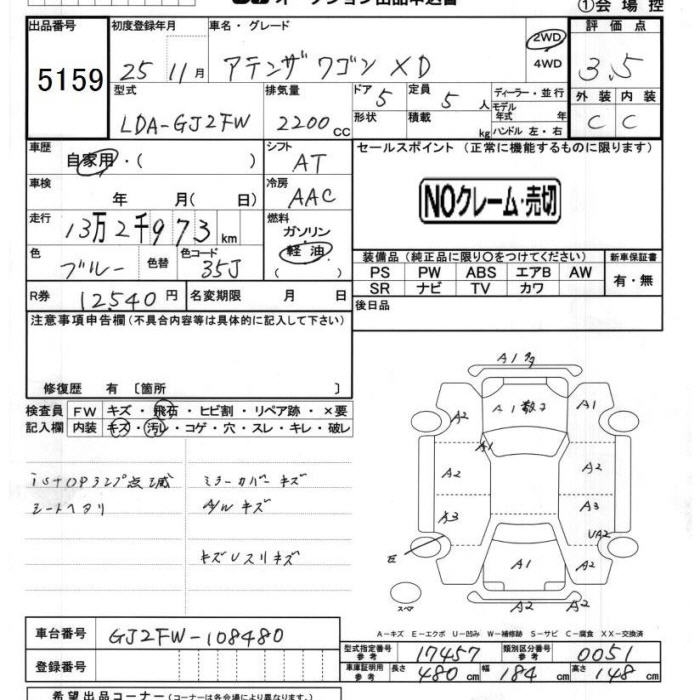 ①会場控
出品番号
5159
初度登録年月
25 11月
車名・グレード
アテンザワゴン XD
2WD
4WD
評価点
3.5
型式
LDA-GJ2FW
排気量
2200cc
ドア
5
定員
5人
形状
積載
kg
ディーラー・並行
モデル年式 年
ハンドル 左・右
外装
内装
C
C
車歴
自家用・( )
シフト
AT
車検
年 月( 日)
冷房
AAC
走行
13万2千973km
燃料
ガソリン
軽油
色
ブルー
色替
色コード
35J
R券
12540円
名変期限 月 日
セールスポイント (正常に機能するものに限ります)
NOクレーム・売切
装備品(純正品に限り○をつけてください)
新車保証書
PS PW ABS エアB AW
SR ナビ TV カワ
有・無
後日品
注意事項申告欄(不具合内容等は具体的に記入して下さい)
修復歴 有 [箇所 ]
検査員記入欄
FW キズ・飛石・ヒビ割・リペア跡・×要
内装 キズ・汚レ・コゲ・穴・スレ・キレ・破レ
iSTOPランプ点滅
シートヘタリ
ミラーカバーキズ
A/Wキズ
キズUスリキズ
A1多
A2
A1散子
A1
A1
A2
A2
A3
A3
UA2
E
A1
A2
A2
A2
スペア
A-キズ E-エクボ U-凹み W-補修跡 S-サビ C-腐食 XX-交換済
車台番号
GJ2FW-108480
登録番号
型式指定番号 参考
17457
類別区分番号 参考
0051
車庫証明用 参考
長さ 480cm
幅 184cm
高さ 148cm
希望出品コーナー(コーナーは各会場により異なります。)